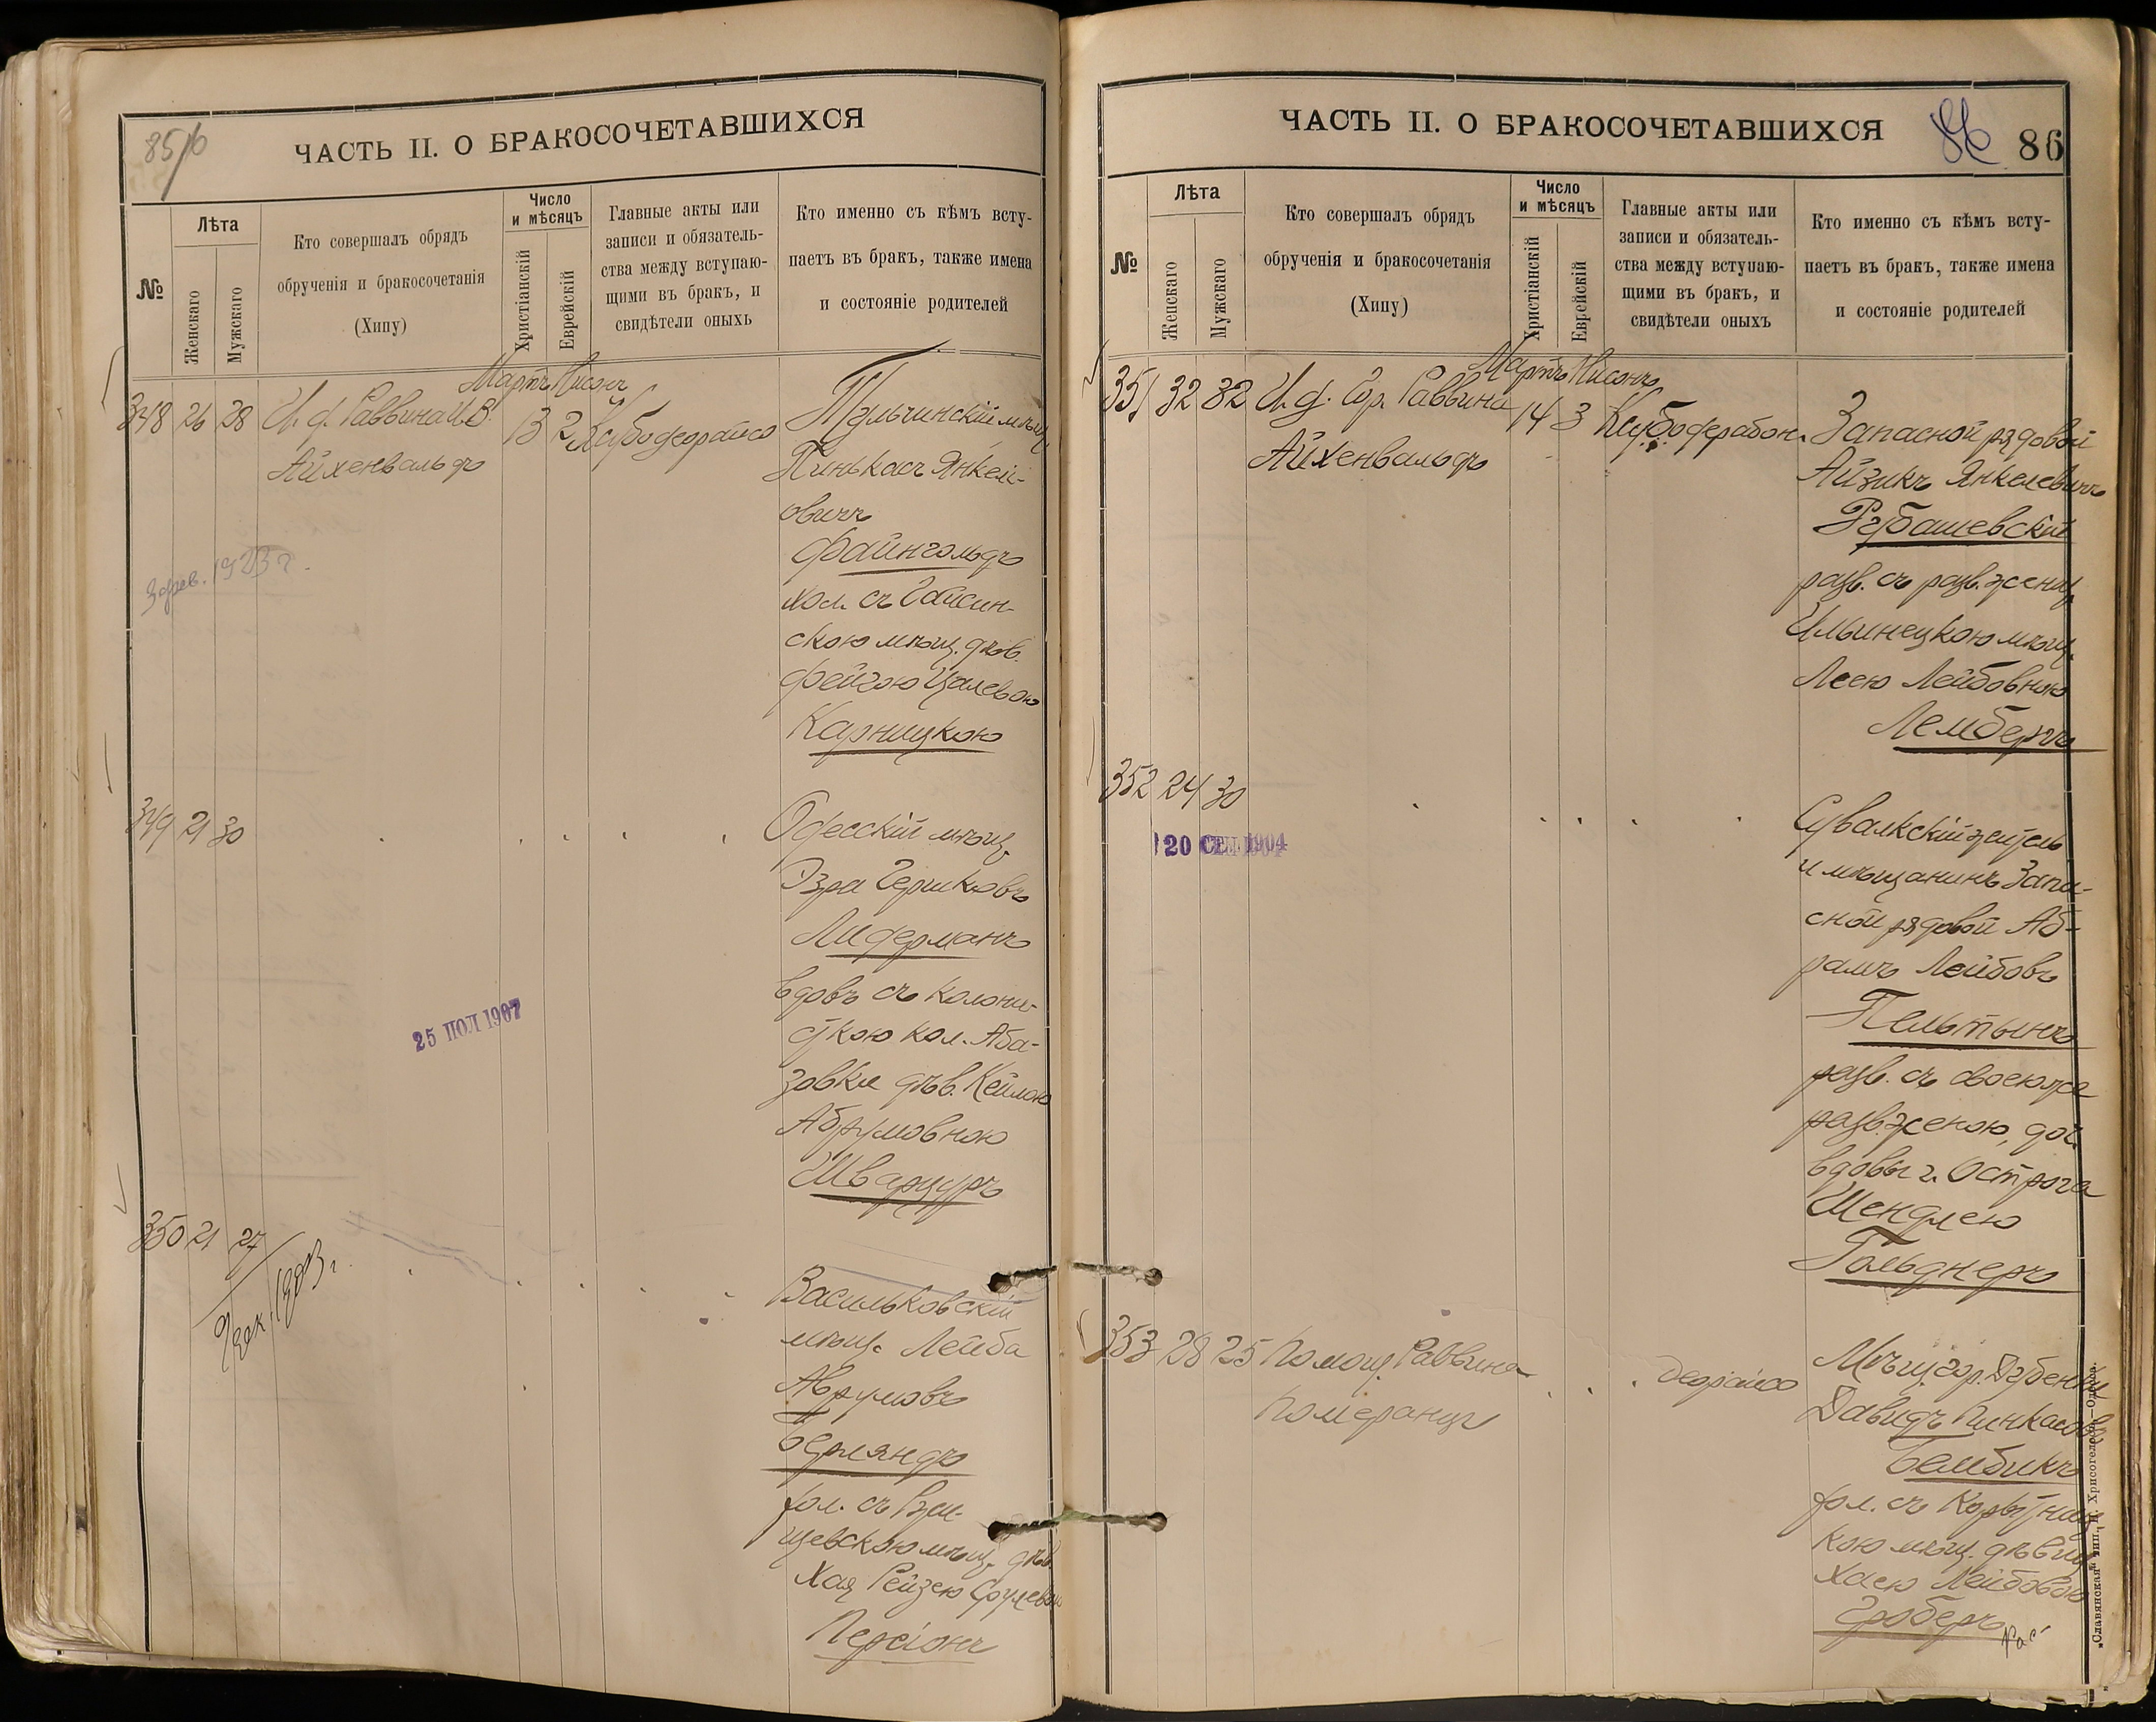 85/б
ЧАСТЬ II. О БРАКОСОЧЕТАВШИХСЯ
№
Лѣта
Женскаго
Мужскаго
Кто совершалъ обрядъ
обрученія и бракосочетанія
(Хипу)
Число
и мѣсяцъ
Христіанскій
Еврейскій
Главные акты или
записи и обязатель-
ства между вступаю-
щими въ бракъ, и
свидѣтели оныхъ
Кто именно съ кѣмъ всту-
паетъ въ бракъ, также имена
и состояніе родителей
Мартъ Нисонъ
348 26 28 И. д. Раввина
Айхенвальдъ
13 2
Тульчинскій мѣщ.
Пинькасъ Янкель-
овичъ
Файнгольдъ
хол. съ Гайсин-
скою мѣщ. дѣв.
Фейгою Цалевою
Карницкою
1923 г.
349 21 30
Одесскій мѣщ.
Эзра Гершковъ
Лидерманъ
вдовъ съ колони-
сткою кол. Аба-
зовки дѣв. Кейлою
Абрумовною
Шварцуръ
25 ІЮЛ 1907
350 21 27
Васильковскій
мѣщ. Лейба
Аврумовъ
Берляндъ
хол. съ Ржи-
щевскою мѣщ. дѣв.
Хая Рейзею Сруlевою
Персіонъ
ЧАСТЬ II. О БРАКОСОЧЕТАВШИХСЯ
86 86
№
Лѣта
Женскаго
Мужскаго
Кто совершалъ обрядъ
обрученія и бракосочетанія
(Хипу)
Число
и мѣсяцъ
Христіанскій
Еврейскій
Главные акты или
записи и обязатель-
ства между вступаю-
щими въ бракъ, и
свидѣтели оныхъ
Кто именно съ кѣмъ всту-
паетъ въ бракъ, также имена
и состояніе родителей
Мартъ Нисонъ
351 32 32 И. д. Гор. Раввина
Айхенвальдъ
14 3
Запасной рядовой
Айзикъ Янкелевичъ
Рубашевскій
разв. съ разв. женщ.
Ильинецкою мѣщ.
Леею Лейбовною
Лембергъ
352 24 30
20 СЕН 1904
Сувалкскій житель
и мѣщанинъ Запа-
сной рядовой Аб-
рамъ Лейбовъ
Пельтынъ
разв. съ своею же
разв. женою, доч.
вдовы г. Острога
Шендлею
Гольднеръ
353 28 25 Помощ. Раввина
Померанцъ
Мѣщ. гор. Дубенки
Давидъ Пинкасовъ
Бембикъ
хол. съ Корытниц
кою мѣщ. дѣвиц.
Хаею Лейбовою
Гроберъ
„Славянская“ тип., Н. Хрисогелосъ.—Одесса.